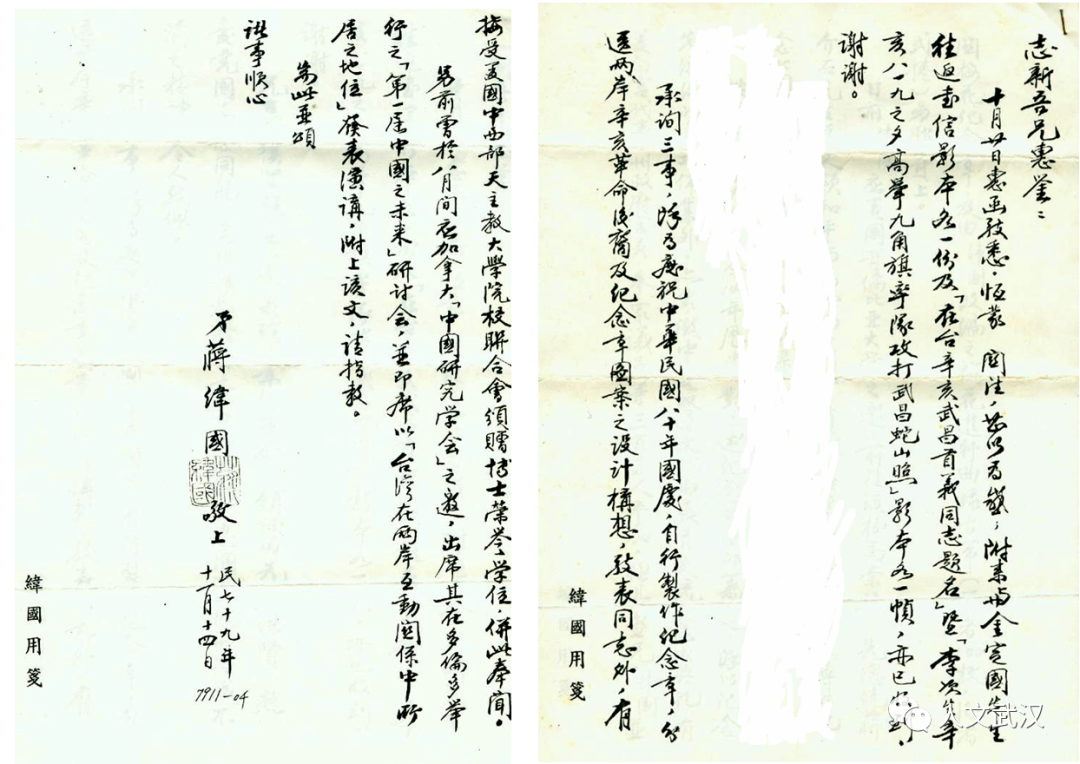 志新吾兄惠鉴：
十月廿日惠函敬悉，恒蒙 關注，以為，附來與金定國先生
往返書信影本各一份及「在台辛亥武昌首義同志題名」暨「李次生辛
亥八一九之夕高舉九角旗率隊攻打武昌蛇山照」影本各一幀，亦已收到，
謝謝。
承詢三事，除為慶祝中華民國八十年國慶，自行製作紀念章，分
送两岸辛亥革命後裔及紀念章圖案之設計構想，敬表同志外，有
緯國用箋
接受美國中西部天主教大學院校聯合會頒贈博士榮譽學位，併此奉聞。
另前曾於八月間應加拿大「中國研究学会」之邀，出席其在多倫多舉
行之「第一屆中國之未來」研討会，並即席以「台灣在两岸互動關係中所
居之地位」發表演講，附上該文，請指教。
耑此並頌
諸事順心
弟 蔣緯國 敬上
蔣緯國
民七十九年
十一月十四日
7911-04
緯國用箋
人文武汉